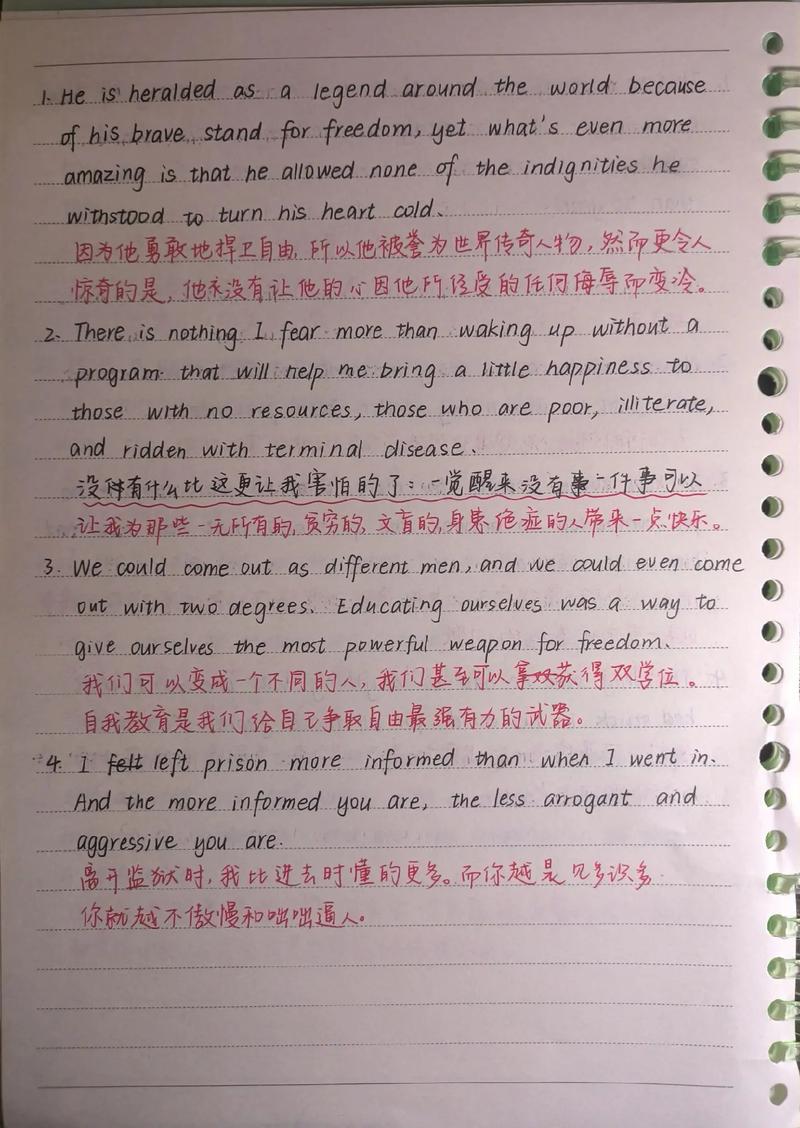 1. He is heralded as a legend around the world because
of his brave stand for freedom, yet what's even more
amazing is that he allowed none of the indignities he
withstood to turn his heart cold.
因为他勇敢地捍卫自由,所以他被誉为世界传奇人物,然而更令人
惊奇的是,他永没有让他的心因他所经受的任何侮辱而变冷。
2. There is nothing I fear more than waking up without a
program that will help me bring a little happiness to
those with no resources, those who are poor, illiterate,
and ridden with terminal disease.
没有什么比这更让我害怕的了:一觉醒来没有一件事可以
让我为那些一无所有的,贫穷的,文盲的,身患绝症的人带来一点快乐。
3. We could come out as different men, and we could even come
out with two degrees. Educating ourselves was a way to
give ourselves the most powerful weapon for freedom.
我们可以变成一个不同的人,我们甚至可以获得双学位。
自我教育是我们给自己争取自由最强有力的武器。
4. I left prison more informed than when I went in.
And the more informed you are, the less arrogant and
aggressive you are.
离开监狱时,我比进去时懂的更多。而你越是见多识多
你就越不傲慢和咄咄逼人。